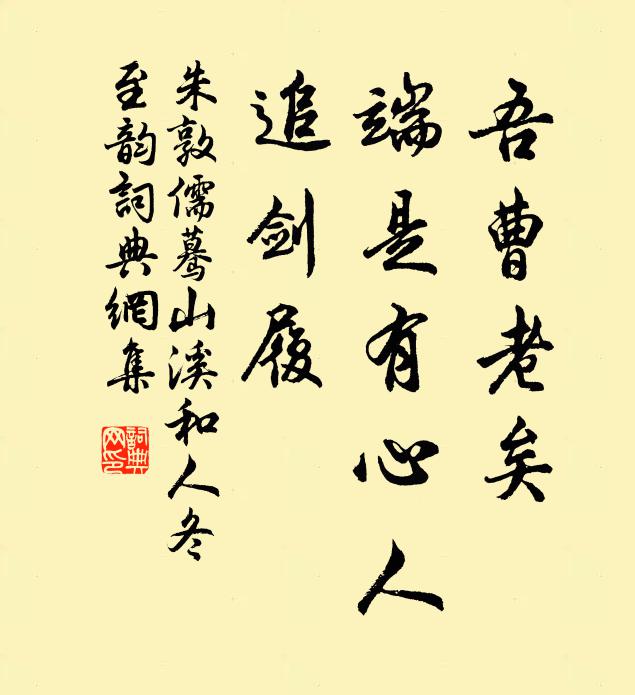 吾曹老矣
端是有心人
追劍履
朱敦儒驀山溪和人冬
至韵詞典網集
詞典網印